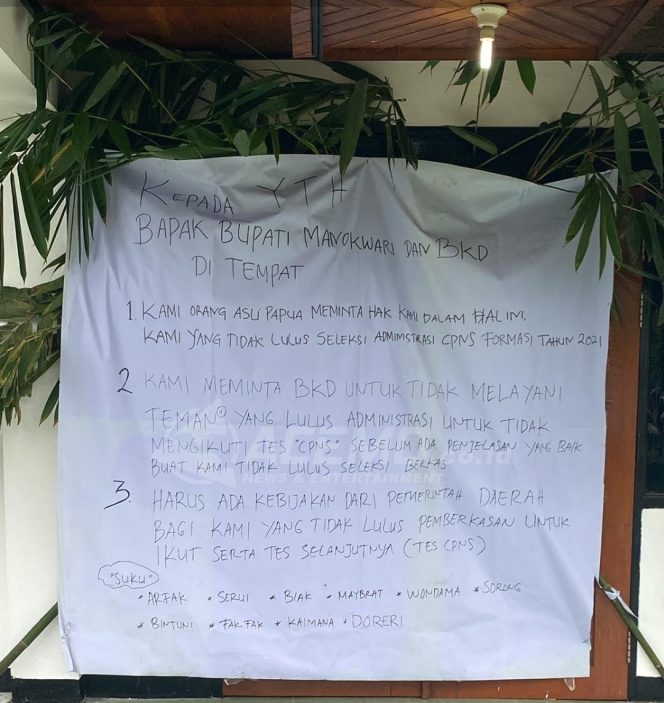 KEPADA YTH
BAPAK BUPATI MANOKWARI DAN BKD
DI TEMPAT
1. KAMI ORANG ASLI PAPUA MEMINTA HAK KAMI DALAM HAL INI,
KAMI YANG TIDAK LULUS SELEKSI ADMINISTRASI CPNS FORMASI TAHUN 2021
2 KAMI MEMINTA BKD UNTUK TIDAK MELAYANI
TEMAN² YANG LULUS ADMINISTRASI UNTUK TIDAK
MENGIKUTI TES "CPNS" SEBELUM ADA PENJELASAN YANG BAIK
BUAT KAMI TIDAK LULUS SELEKSI BERKAS
.co.id
NEWS & ENTERTAINMENT
3. HARUS ADA KEBIJAKAN DARI PEMERINTAH DAERAH
BAGI KAMI YANG TIDAK LULUS PEMBERKASAN UNTUK
IKUT SERTA TES SELANJUTNYA (TES CPNS)
"SUKU"
* ARFAK * SERUI * BIAK * MAYBRAT * WONDAMA * SORONG
* BINTUNI * FAKFAK * KAIMANA * DORERI